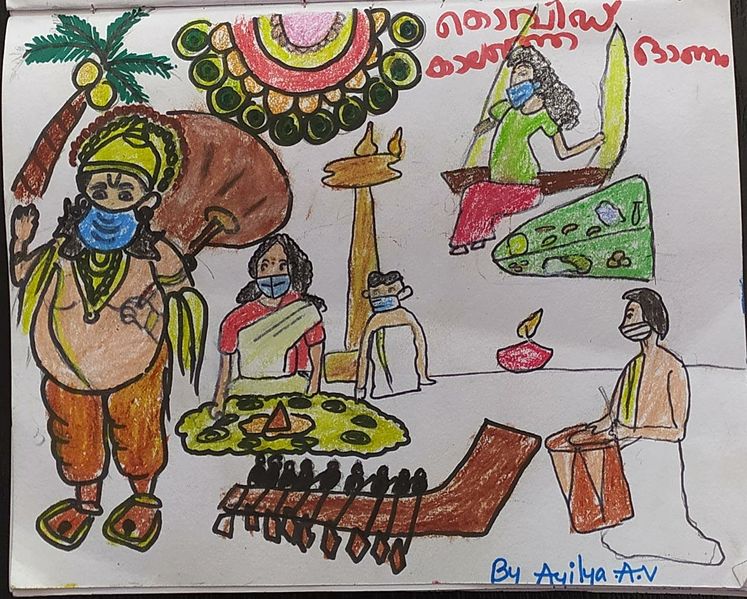 കൊവിഡ്
കാലത്തെ ഓണം
By Ayilya.A.V